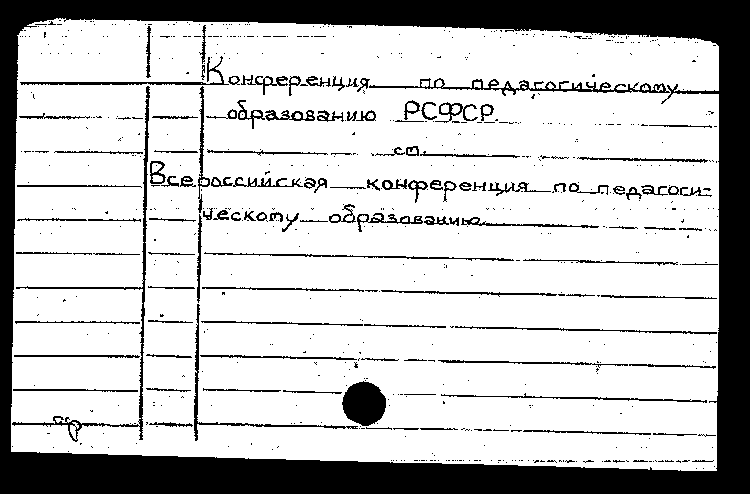 Конференция по педагогическому
образованию РСФСР
см.
Всероссийская конференция по педагоги-
ческому образованию